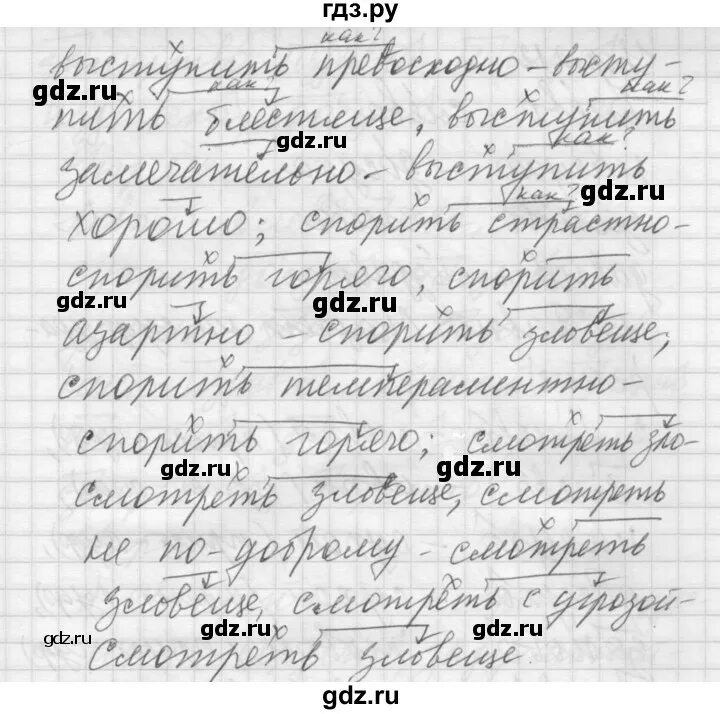 гдз.ру
как?
выступить превосходно – высту-
как? как?
пить блестяще, выступить
gdz.ru
как?
замечательно – выступить
как? gdz.ru
хорошо; спорить страстно –
спорить горячо, спорить
gdz.ru gdz.ru
азартно – спорить зловеще;
спорить темпераментно –
спорить горячо; смотреть зло –
gdz.ru gdz.ru
смотреть зловеще, смотреть
не по-доброму – смотреть
зловеще, смотреть с угрозой –
gdz.ru gdz.ru gdz.ru
смотреть зловеще.
gdz.ru